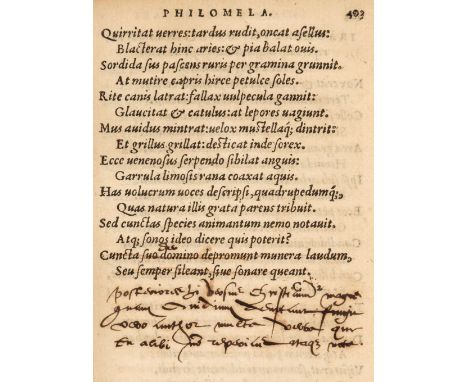 PHILOMELA. 493
Quirritat uerres: tardus rudit, oncat asellus:
Blacterat hinc aries: & pia balat ouis.
Sordida sus pascens ruris per gramina grunnit.
At mutire capris hirce petulce soles.
Rite canis latrat: fallax uulpecula gannit:
Glaucitat & catulus: at lepores uagiunt.
Mus auidus mintrat: uelox mustellaq; dintrit:
Et grillus grillat: desticat inde sorex.
Ecce uenenosus serpendo sibilat anguis:
Garrula limosis rana coaxat aquis.
Has uolucrum uoces descripsi, quadrupedumq;,
Quas natura illis grata parens tribuit.
Sed cunctas species animantum nemo notauit.
Atq; sonos ideo dicere quis poterit?
Cuncta suo domino depromunt munera laudum,
Seu semper sileant, siue sonare queant.
posteriores hi versus Christianum magis
quam Ouidium
multa
alibi